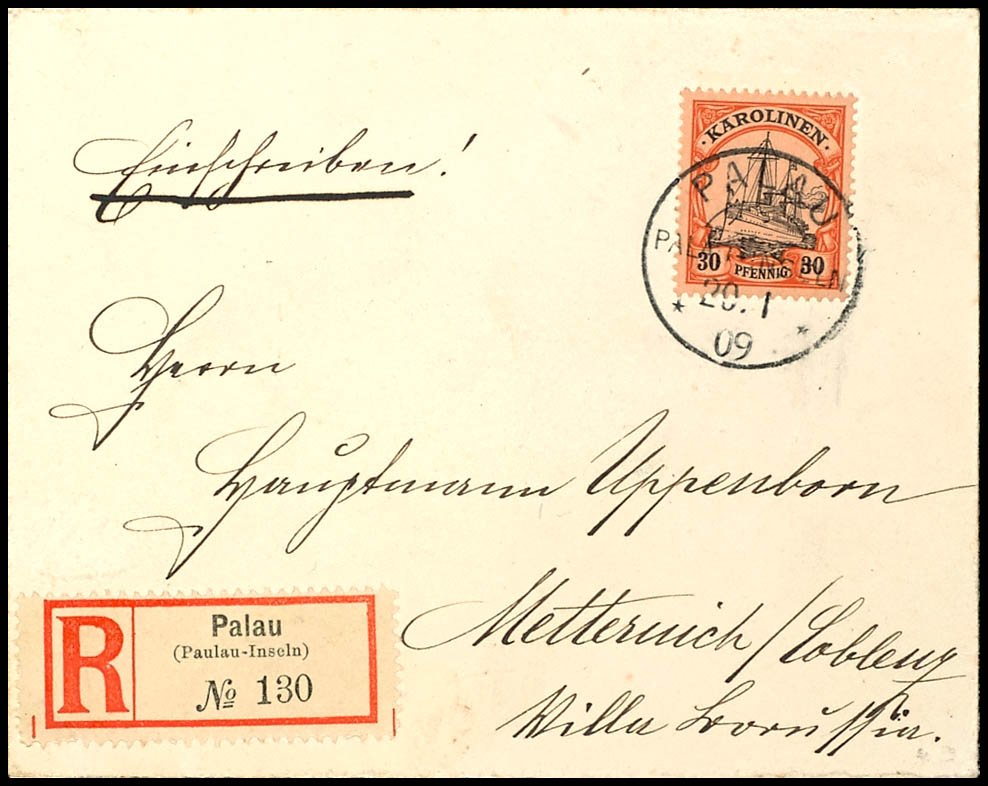 Einschreiben!
KAROLINEN
30 PFENNIG 30
PALAU
PALAU-INSELN
20. 1
09
Herrn
Hauptmann Uppenborn
Metternich/Coblenz
Villa Borussia.
R
Palau
(Paulau-Inseln)
№ 130